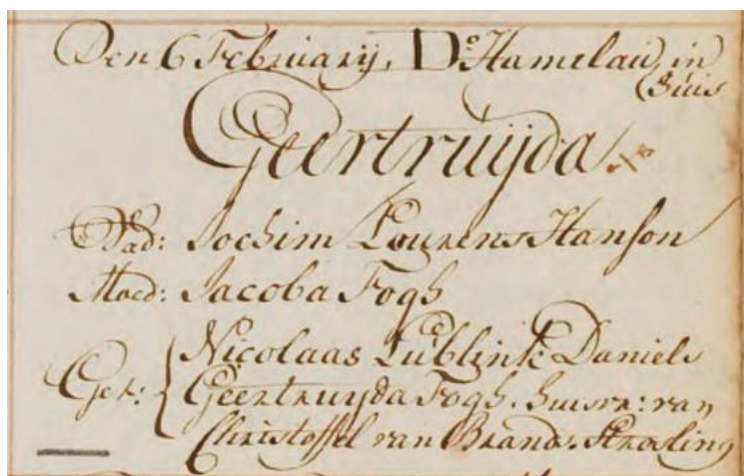 Den 6 February, Do Hamelau, in
Huis
Geertruijda
Vad: Jochim Lourens Hanson
Moed: Jacoba Fogh
Get: Nicolaas Lublink Daniels
Geertruijda Fogh. huisvr: van
Christoffel van Brands.